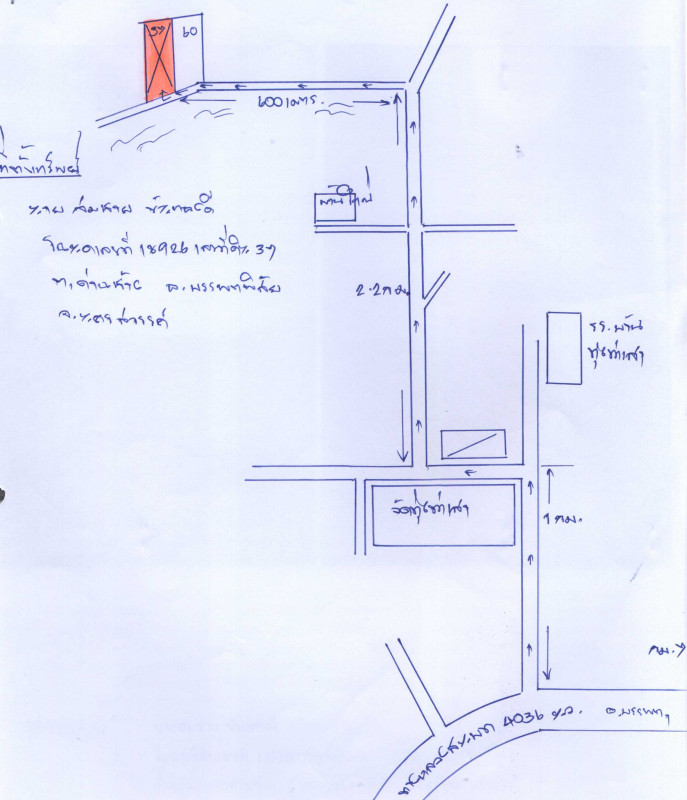 37
60
600 เมตร.
ที่ตั้งทรัพย์
นาย สมชาย
โฉนดเลขที่ 18926 เลขที่ดิน 37
ต.ด่านช้าง อ.บรรพตพิสัย
จ.นครสวรรค์
2.2 กม.
รร.บ้าน
ทุ่งท่าเสา
วัดทุ่งท่าเสา
1 กม.
กม.7
ทางหลวงชนบท 4036 นว.
อ.บรรพต